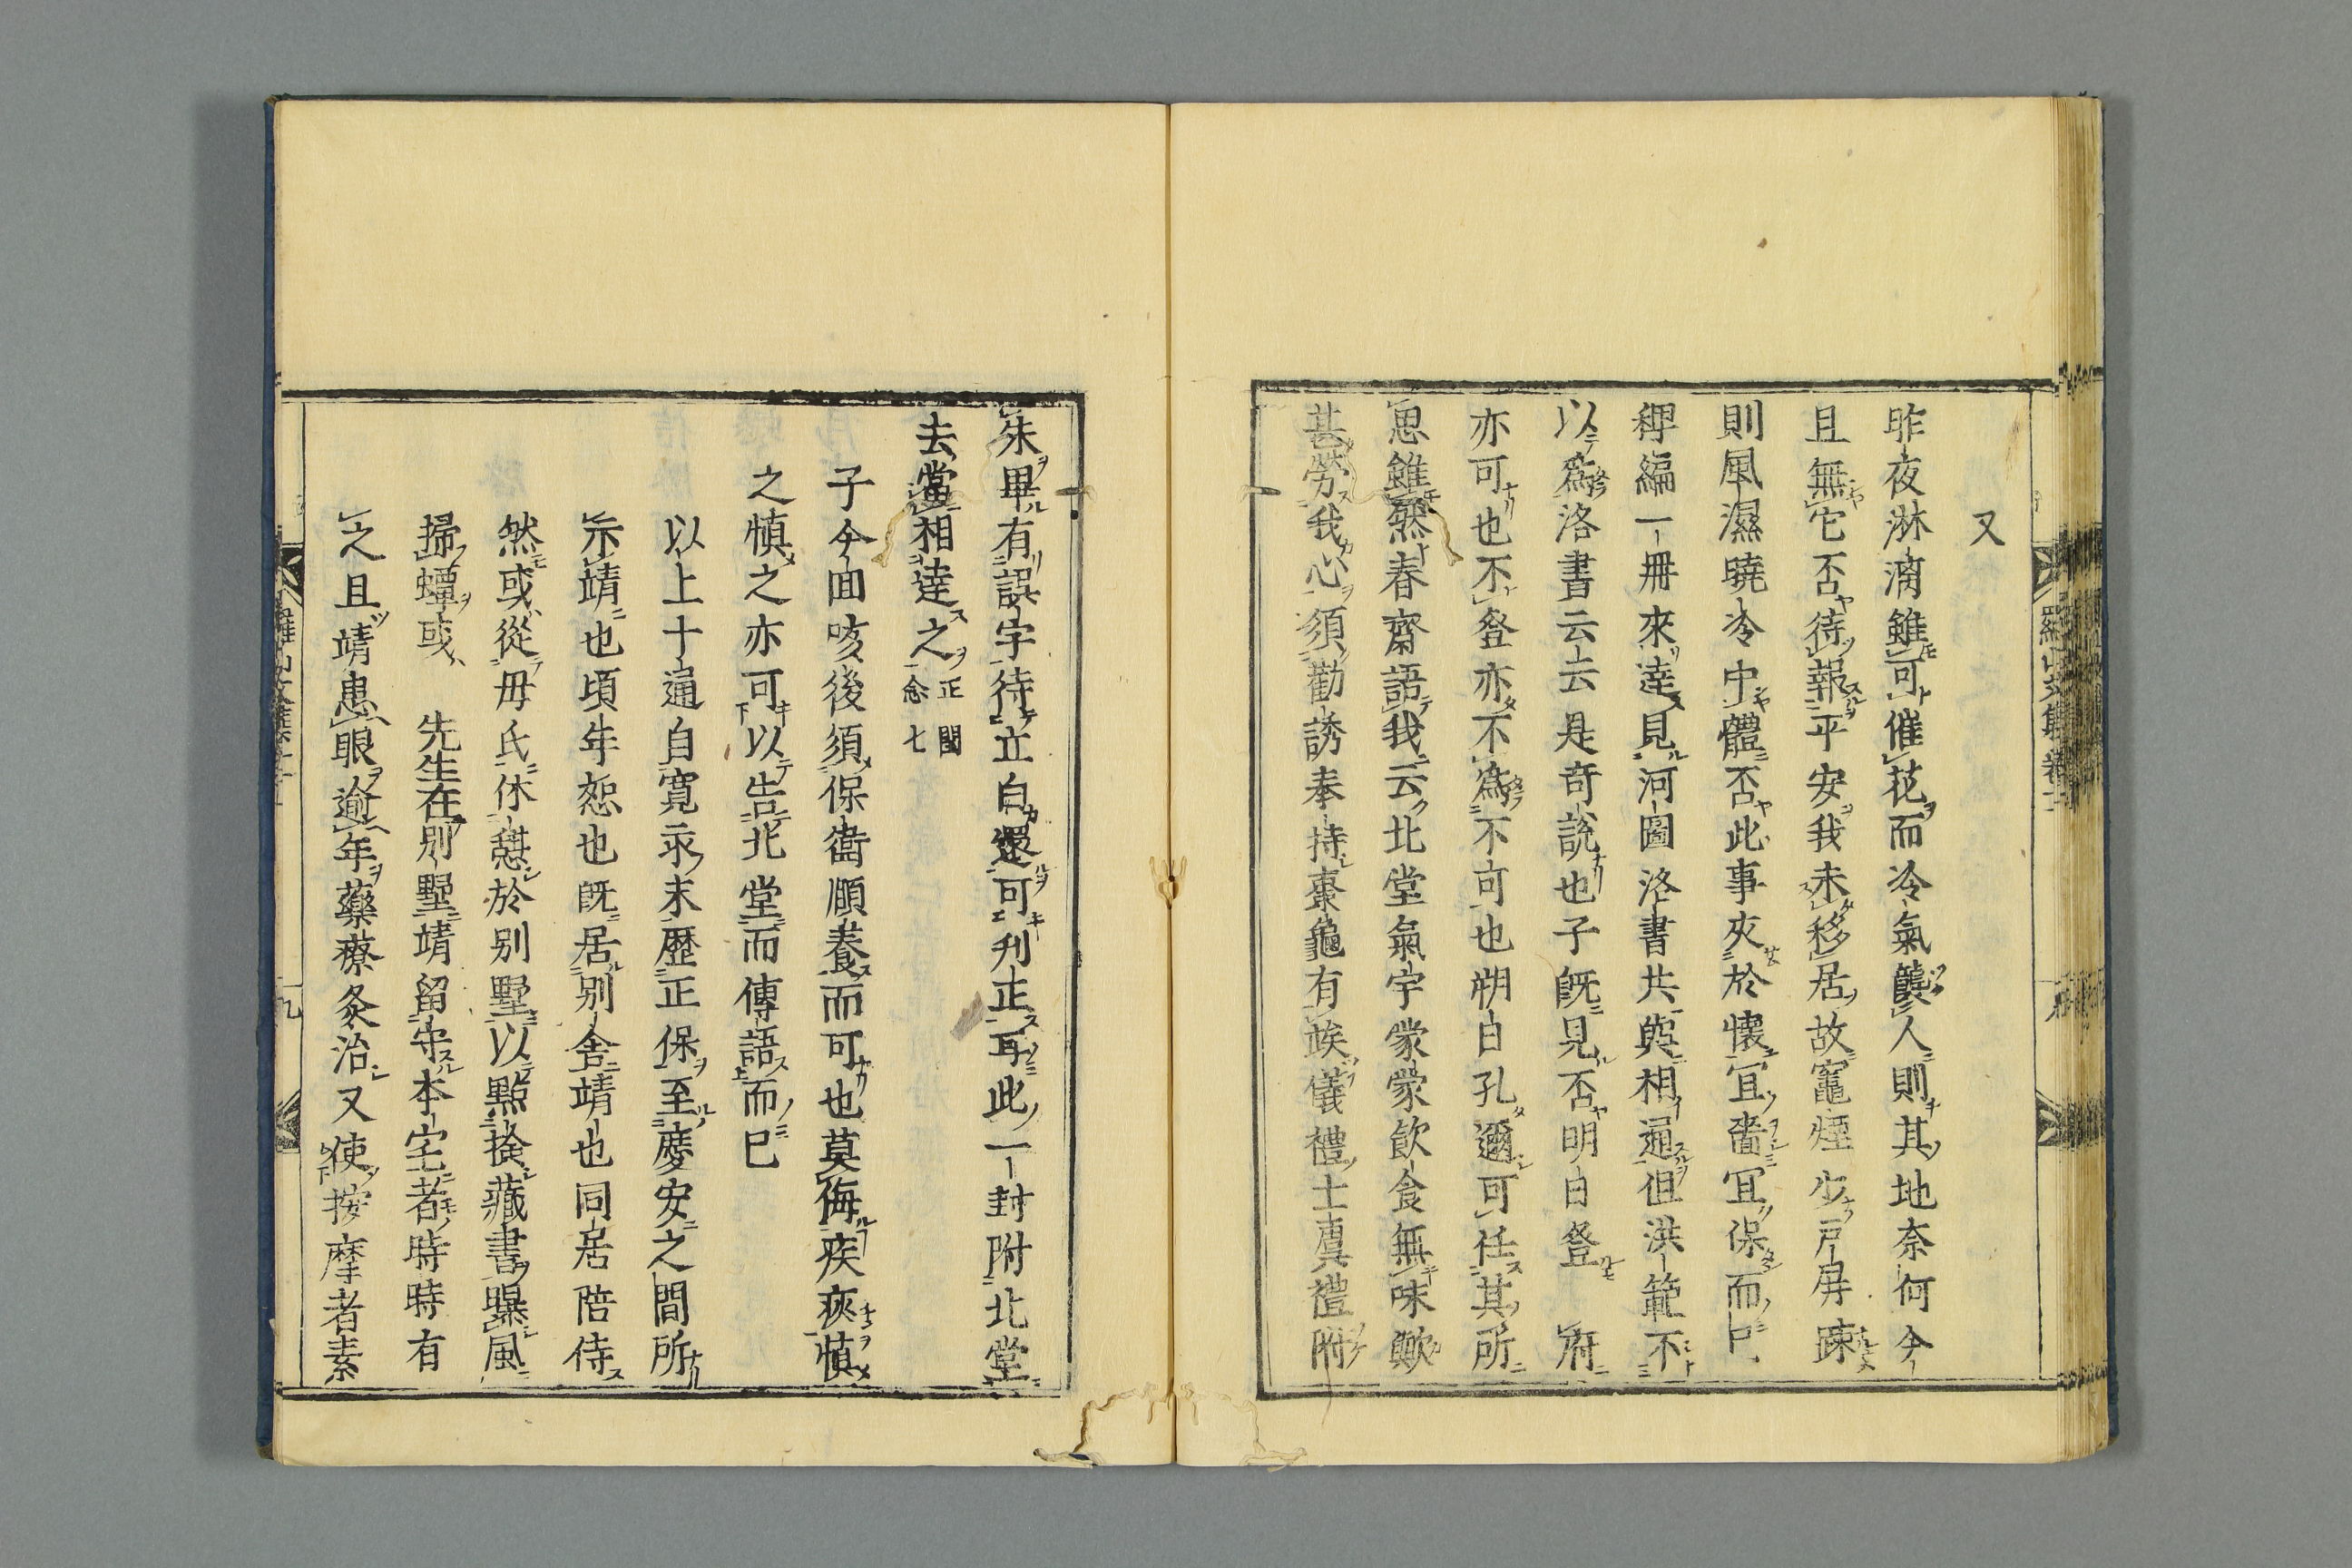 又
昨夜淋漓雖可催花而冷氣襲人則其地奈何今
且無它否待報平安我未移居故竈煙少戸屏踈
則風濕曉冷中體否此事夾於懷冝嗇冝保而已
稗編一冊來達見河圖洛書共與相通但洪範不
以爲洛書云云是奇說也子既見否明白登 府
亦可也不登亦不爲不可也明日孔邇可任其所
思雖然春齋語我云北堂氣宇蒙蒙飲食無味歟
甚勞我心須勸誘奉持棗龜有族儀禮士虞禮附
朱畢有誤字待立白還可刋正耳此一封附北堂
去當相達之 正閏念七
子今回咳後須保衞順養而可也莫侮疾疢愼
之愼之亦可以告北堂而傳語而已
以上十通自寬永末歷正保至慶安之間所
示靖也頃年恕也既居別舍靖也同居陪侍
然或從毋氏休憩於別墅以點撿藏書曝風
掃蟫或 先生在別墅靖留守本宅者時時有
之且靖患眼逾年藥療灸治又使按摩者素